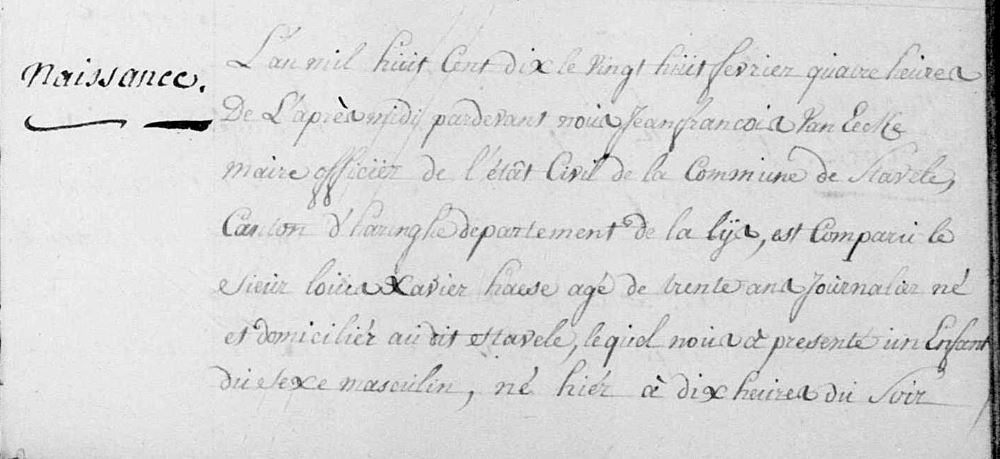 Naissance.
L'an mil huit Cent dix le vingt huit fevrier quatre heures
De L'après midi pardevant nous Jean francois Van Eecke
maire officiér de l'êtât Civil de la Commune de Stavele,
Canton d'haringhe departement de la lÿs, est Comparu le
sieur louis Xavier haese agé de trente ans Journaliér né
et domiciliér au dit stavele, lequel nous à presenté un Enfant
du sexe masculin, né hiér à dix heures du Soir